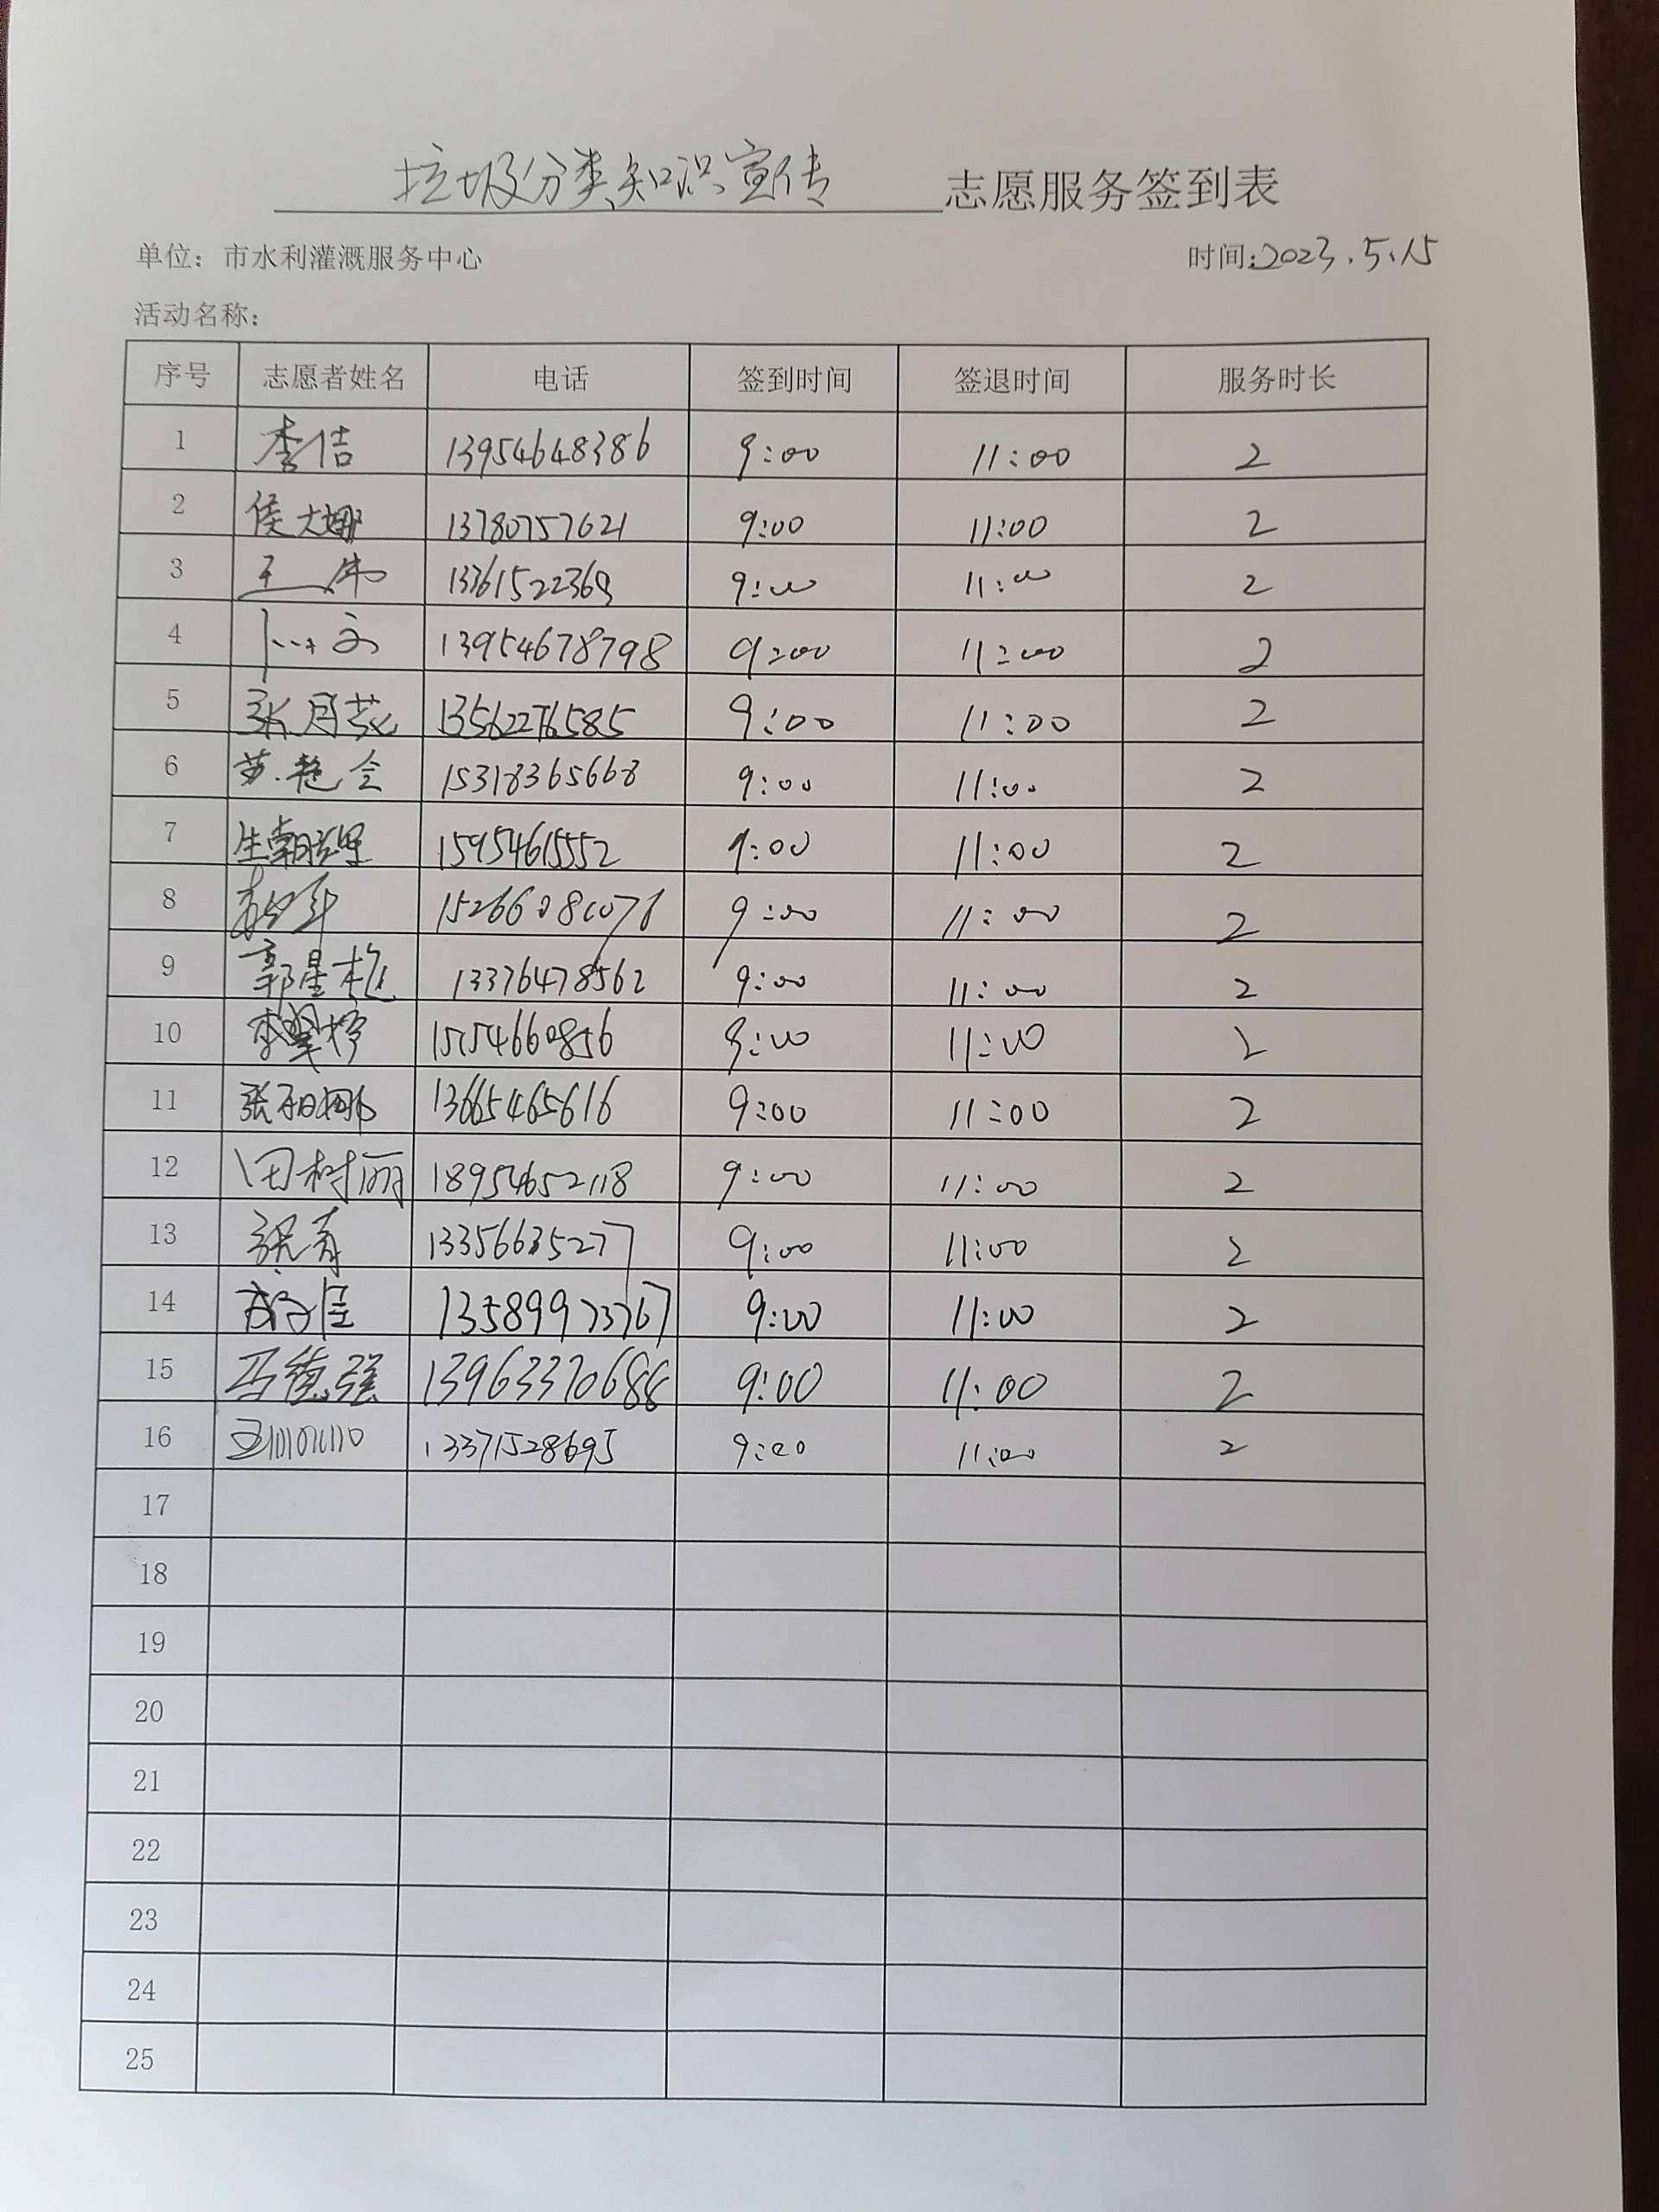 垃圾分类知识宣传 志愿服务签到表
单位：市水利灌溉服务中心 时间:2023.5.15
活动名称：
序号 志愿者姓名 电话 签到时间 签退时间 服务时长
1 李洁 13954648386 9:00 11:00 2
2 侯大娜 13780757621 9:00 11:00 2
3 王伟 13361522369 9:00 11:00 2
4 13954678798 9:00 11:00 2
5 张月英 13562276585 9:00 11:00 2
6 苏艳会 15318365668 9:00 11:00 2
7 15954615552 9:00 11:00 2
8 9:00 11:00 2
9 郭星 13376478562 9:00 11:00 2
10 李翠婷 15154660856 9:00 11:00 2
11 13665465616 9:00 11:00 2
12 田树丽 18954652118 9:00 11:00 2
13 张青 13356635277 9:00 11:00 2
14 13589973767 9:00 11:00 2
15 马德强 13963370688 9:00 11:00 2
16 13371528695 9:00 11:00 2
17
18
19
20
21
22
23
24
25